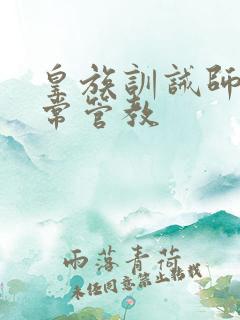 皇族訓誡師
常管教
雨落青荷
未经同意禁止转载